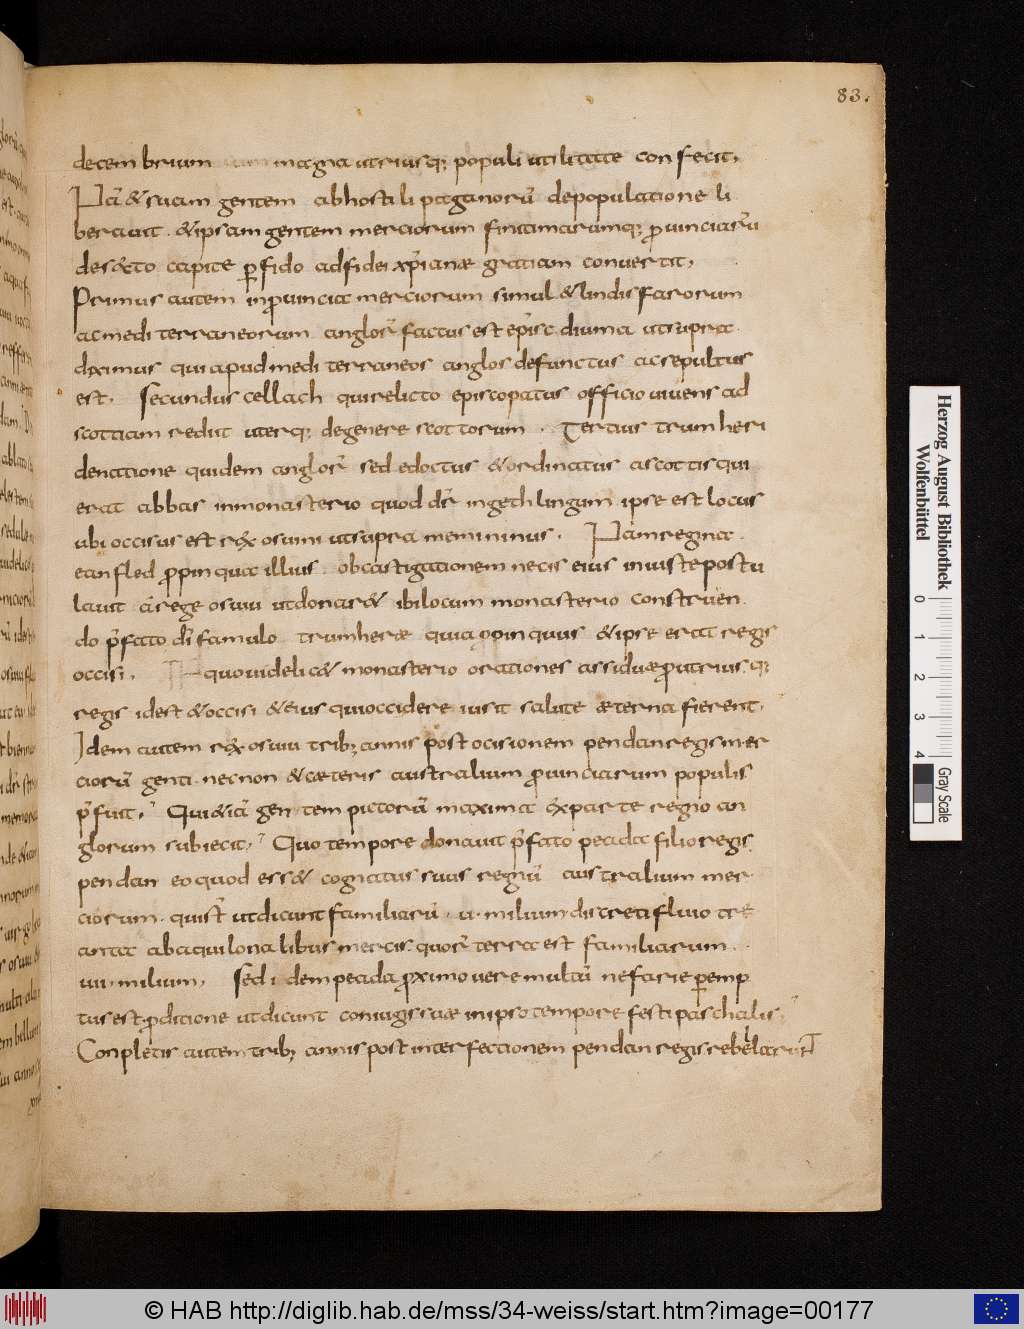 83.
decem brium cum magna utriusq; populi utilitate confecit,
Nā & suam gentem ab hostili paganorū depopulatione li
beravit . & ipsam gentem merciorum finitimarumq; provinciarū
desecto capite perfido ad fidei xp̄ianae gratiam convertit,
Primus autem in provincia merciorum simul & lindisfarorum
ac mediterraneorum anglor̄ factus est ep̄isc. diuma ut supra
diximus qui apud mediterraneos anglos defunctus ac sepultus
est. Secundus cellach qui relicto episcopatus officio vivens ad
scottiam rediit uterq; de genere scottorum . Tertius trumheri
de natione quidem anglor̄ sed edoctus & ordinatus a scottis qui
erat abbas in monasterio quod dr̄ ingethlingum ipse est locus
ubi occisus est rex osuini ut supra meminimus. Nam regina
eanfled propinqua illius ob castigationem necis eius iniuste postu
lavit a rege osuiu ut donar& ibi locum monasterio construen
do p̄fato dī famulo trumherae quia propinquus & ipse erat regis
occisi. In quo videlic& monasterio orationes assiduae pro utriusq;
regis id est & occisi & eius qui occidere iusit salute aeterna fierent.
Idem autem rex osuiu trib; annis post ocisionem pendan regis mer
ciorū genti necnon & caeteris australium provinciarum populis
p̄fuit. Qui & iā gentem pictorū maxima ex parte regno an
glorum subiecit. Quo tempore donavit p̄fato peada filio regis
pendan eo quod ess& cognatus suus regnū australium mer
ciorum. qui st̄ ut dicunt familiarū . u . milium discreti fluio tre
anta ab aquilonalibus mercis. quor̄ terra est familiarum.
uii. milium. Sed idem peada proximo vere multū nefarie peremp
tus est proditione ut dicunt coniugis suae in ipso tempore festi paschalis.
Conpletis autem trib; annis post interfectionem pendan regis rebellarunt
Herzog August Bibliothek
Wolfenbüttel
0 1 2 3 4
Gray Scale
© HAB http://diglib.hab.de/mss/34-weiss/start.htm?image=00177